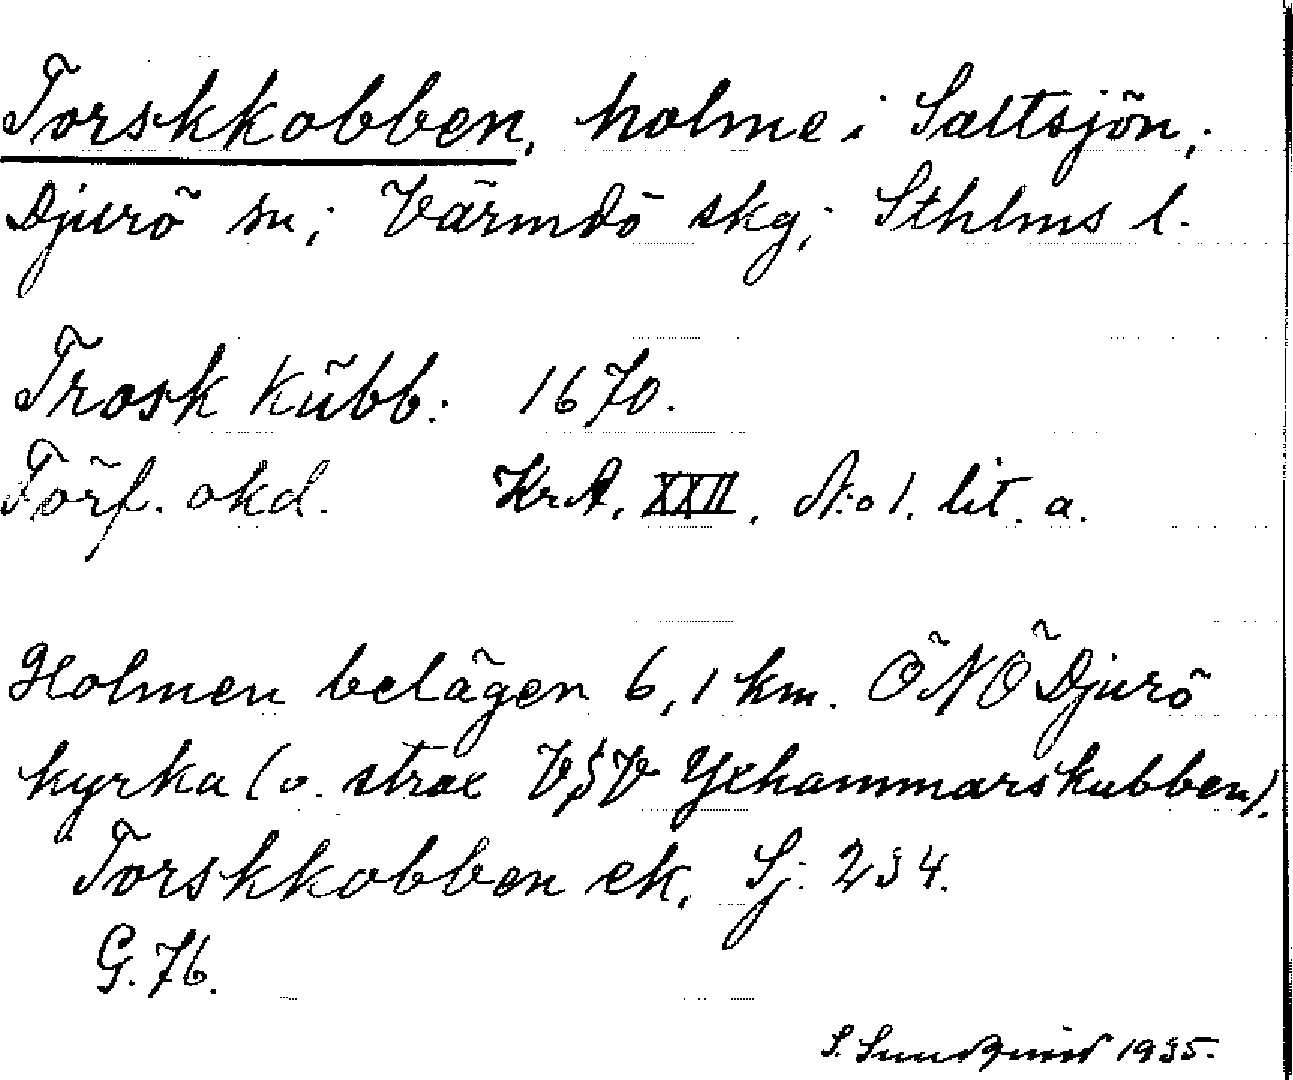 Torskkobben, holme i Saltsjön,
Djurö sn; Värmdö skg; Sthlms l.
Trosk Kübb: 1670.
Förf. okd. KrA. XXII. N:o 1. lit. a.
Holmen belägen 6,1 km. ÖNÖ Djurö
kyrka (o. strax VSV Yxhammarskubben).
Torskkobben ek. Sj: 234.
G.76.
S. Sundqvist 1935.